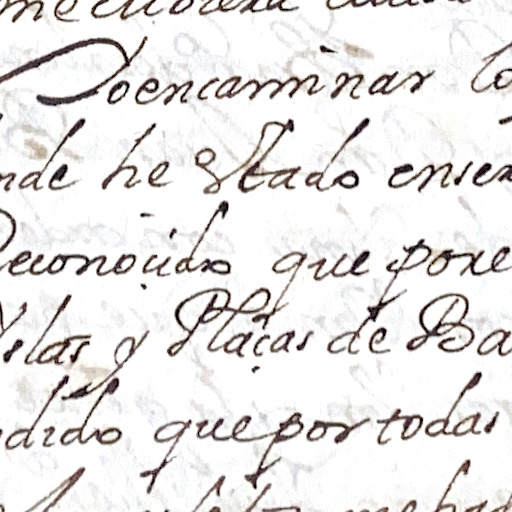 Doencaminar lo
nde he estado ensex
Reconoçido que pore
Yslas y Plaças de Ba
dido que por todas